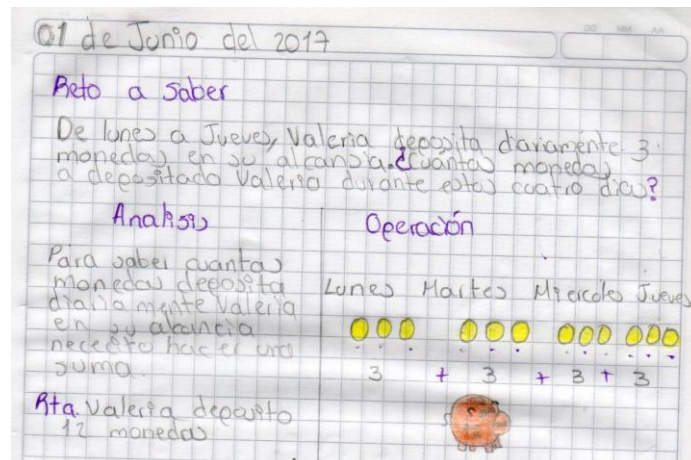 01 de Junio del 2017
DD MM AA
Reto a Saber
De lunes a Jueves, Valeria deposita diariamente 3
monedas en su alcansia. ¿Cuántas monedas
a depositado Valeria durante estos cuatro dias?
Analisis
Para saber cuantas
monedas deposita
diariamente Valeria
en su alcancia
necesito hacer una
suma.
Rta. Valeria deposito
12 monedas
Operación
Lunes Martes Miercoles Jueves
3 + 3 + 3 + 3